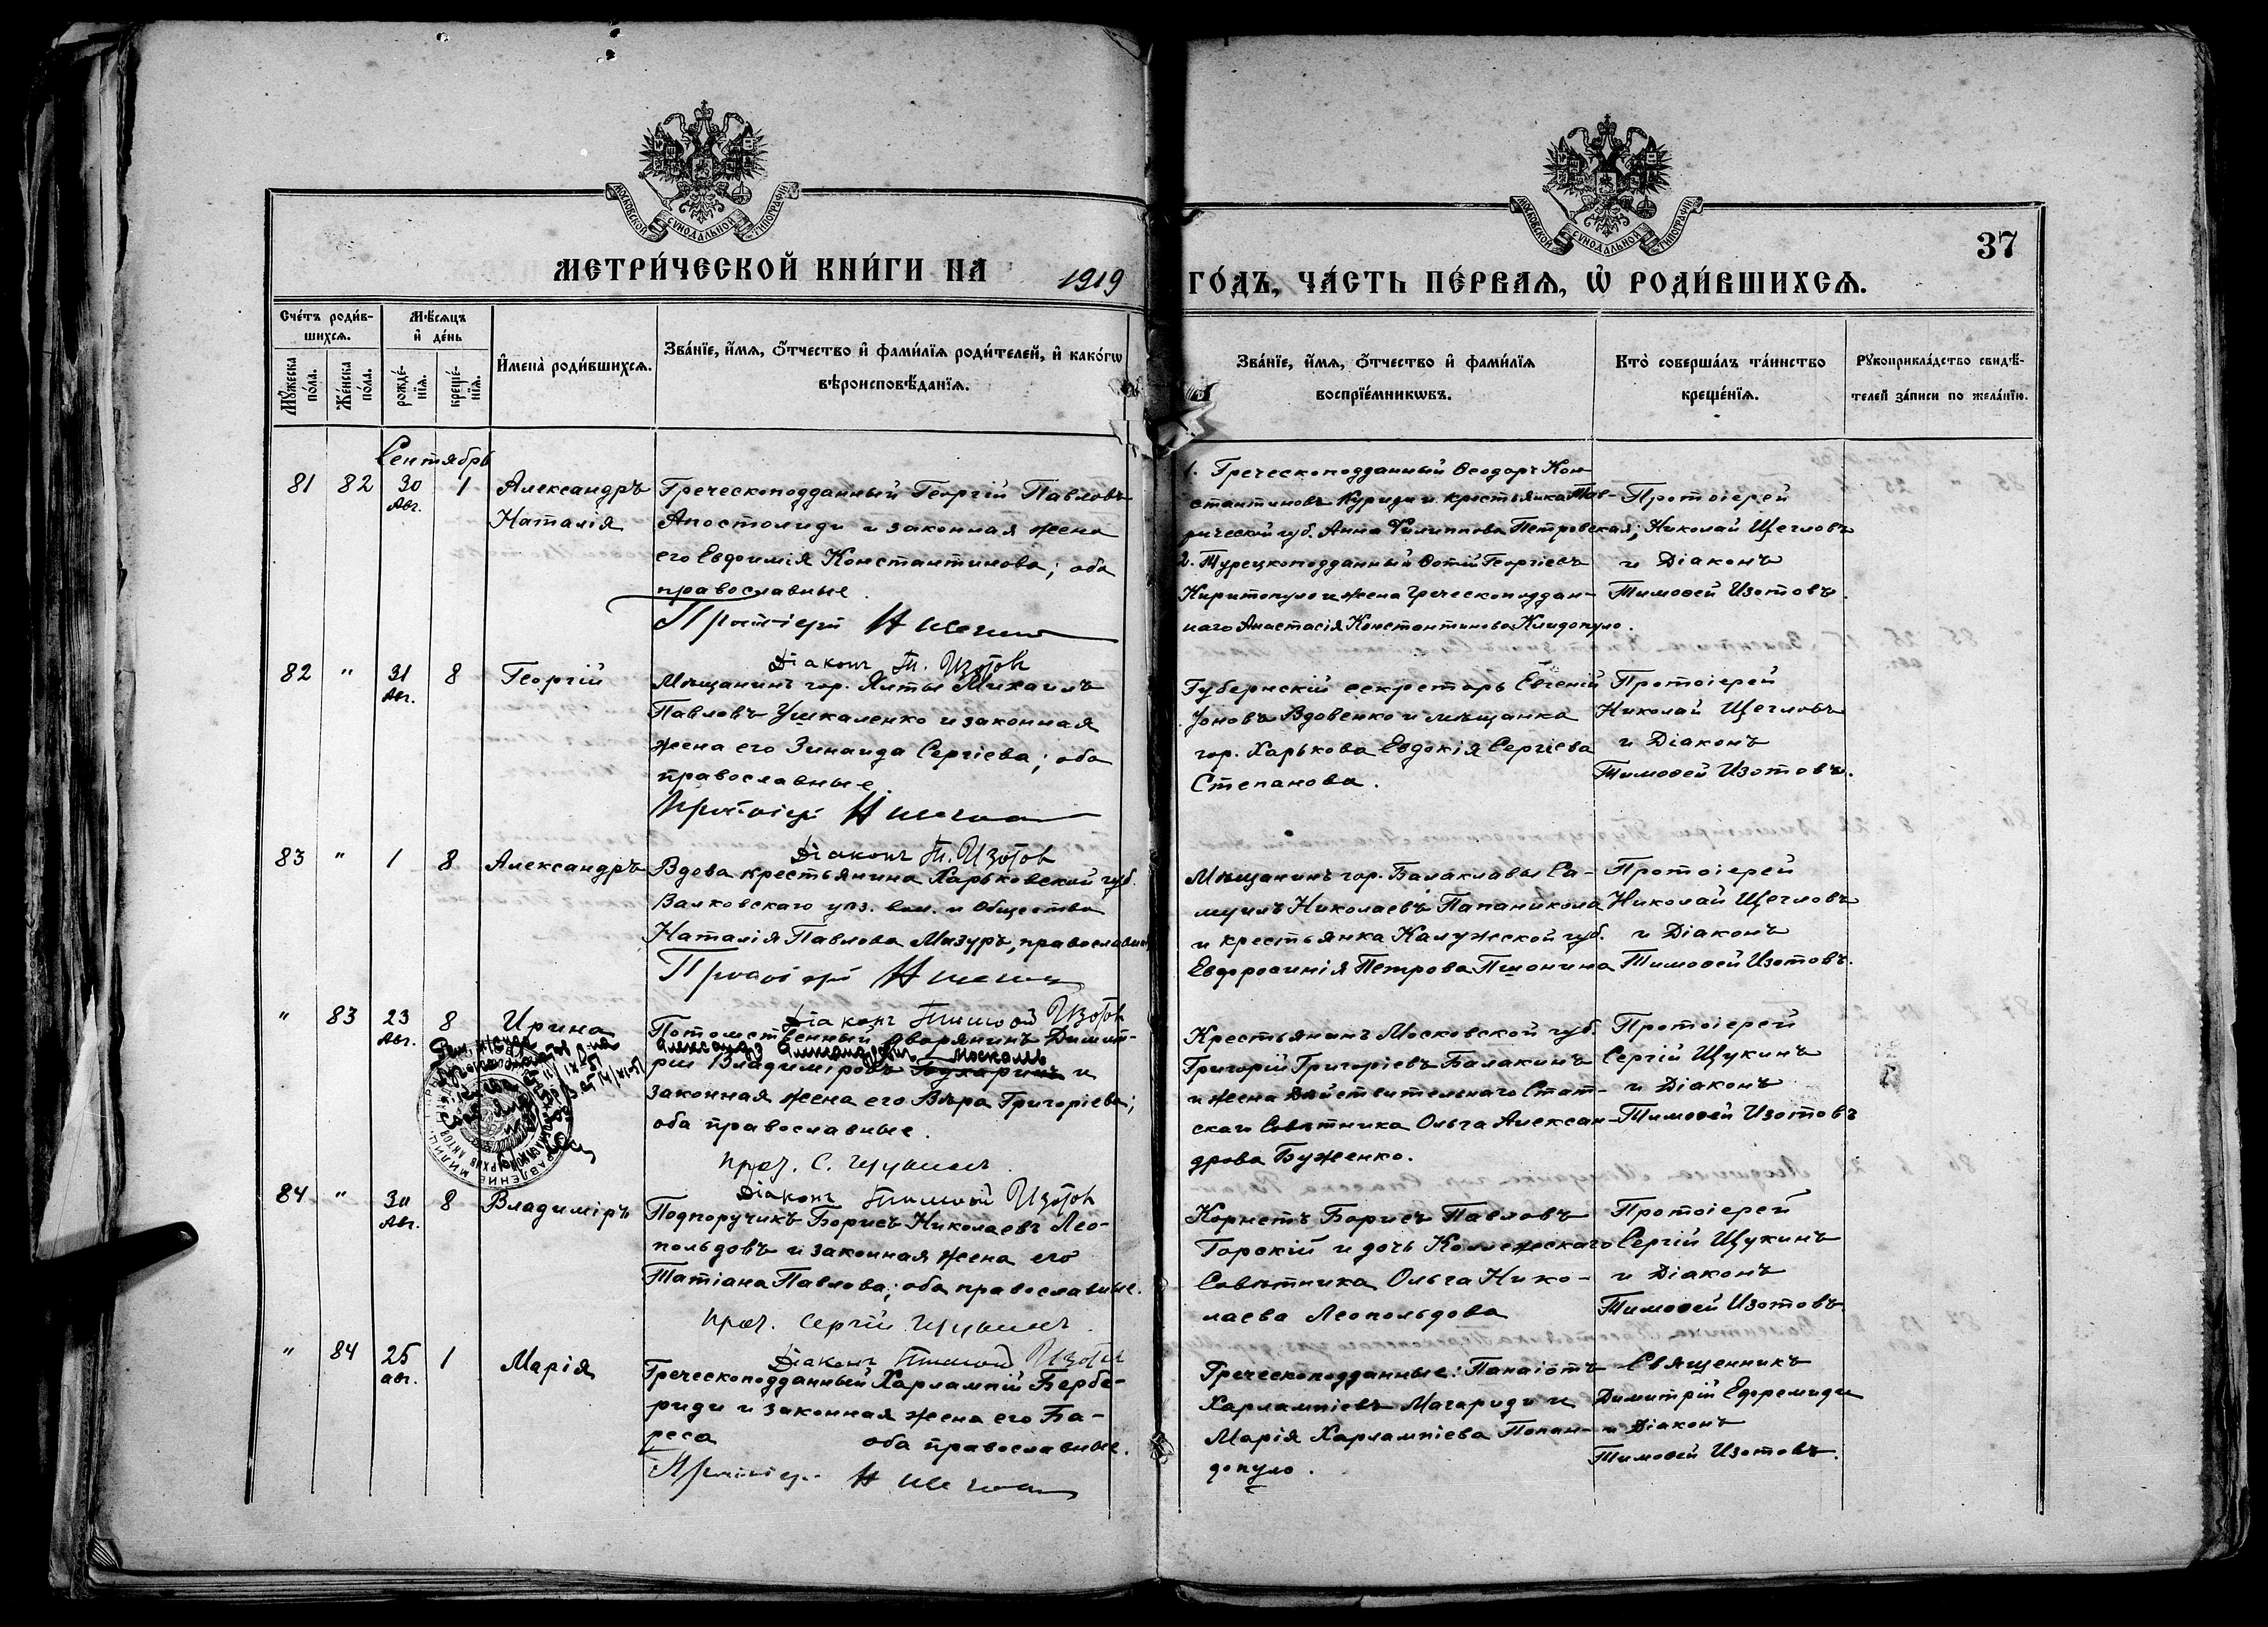 МОСКОВСКОЙ СѴНОДАЛЬНОЙ ТИПОГРАФІИ
МОСКОВСКОЙ СѴНОДАЛЬНОЙ ТИПОГРАФІИ
37
МЕТРИ́ЧЕСКОЙ КНИ́ГИ НА 1919 ГО́ДЪ, ЧА́СТЬ ПЕ́РВАѦ, Ѡ҆ РОДИ́ВШИХСѦ.
Сче́тъ роди́в-
шихсѧ.
Мꙋ́жеска по́ла.
Же́нска по́ла.
Мѣ́сѧцъ
и҆ де́нь
рожде́-
нїѧ.
креще́-
нїѧ.
И҆мена̀ роди́вшихсѧ.
Зва́нїе, и҆́мѧ, ѻ҆́тчество и҆ фами́лїѧ роди́телей, и҆ како́гѡ
вѣроисповѣ́данїѧ.
Зва́нїе, и҆́мѧ, ѻ҆́тчество и҆ фами́лїѧ
воспрїе́мникѡвъ.
Кто̀ соверша́лъ та́инство
креще́нїѧ.
Рꙋкоприкла́дство свидѣ́-
телей за́писи по жела́нїю.
Сентябрь
81 82 30 Авг. 1
Александръ
Наталія
Греческоподданный Георгій Павловъ
Апостолиди и законная жена
его Евфимія Константинова; оба
православные.
Протоіерей Н Щегловъ
Діаконъ Т. Изотов
1. Греческоподданный Ѳеодоръ Кон-
стантиновъ Куриди и крестьянка Тав-
рической губ. Анна Филиппова Петровская;
2. Турецкоподданный Фотій Георгіевъ
Киритопуло и жена греческоподдан-
наго Анастасія Константинова Клидопуло.
Протоіерей
Николай Щегловъ
и Діаконъ
Тимоѳей Изотовъ.
82 " 31 Авг. 8
Георгій
Мѣщанинъ гор. Ялты Михаилъ
Павловъ Ушкаленко и законная
жена его Зинаида Сергіева; оба
православные
Протоіерей Н Щегловъ
Діаконъ Т. Изотов
Губернскій секретарь Евгеній
Іоновъ Вдовенко и мѣщанка
гор. Харькова Евдокія Сергіева
Степанова.
Протоіерей
Николай Щегловъ
и Діаконъ
Тимоѳей Изотовъ.
83 " 1 8
Александръ
Вдова крестьянина Харьковской губ.
Валковскаго уѣз. вол. и общества
Наталія Павлова Мазуръ, православн
Протоіерей Н Щегловъ
Діаконъ Тимоѳей Изотов
Мѣщанинъ гор. Балаклавы Са-
муилъ Николаевъ Папаникола
и крестьянка Калужской губ.
Евфросинія Петрова Пшонина
Протоіерей
Николай Щегловъ
и Діаконъ
Тимоѳей Изотовъ.
" 83 23 Авг. 8
Ирина
Потомственный дворянинъ Димит-
Александр Александрович Москаль
рій Владиміровъ и
законная жена его Вѣра Григоріева;
оба православные.
прот. С. Щукинъ.
Діаконъ Тимоѳей Изотов
Крестьянинъ Московской губ.
Григорій Григоріевъ Балакинъ
и жена Дѣйствительнаго Стат-
скаго Совѣтника Ольга Алексан-
дрова Буженко.
Протоіерей
Сергій Щукинъ
и Діаконъ
Тимоѳей Изотовъ
84 " 30 Авг. 8
Владиміръ
Подпоручикъ Борисъ Николаевъ Лео-
польдовъ и законная жена его
Татіана Павлова; оба православные.
прот. Сергій Щукинъ.
Діаконъ Тимоѳей Изотов
Корнетъ Борисъ Павловъ
Горскій и дочь Коллежскаго
Совѣтника Ольга Нико-
лаева Леопольдова
Протоіерей
Сергій Щукинъ
и Діаконъ
Тимоѳей Изотовъ
" 84 25 авг. 1
Марія
Греческоподданный Харлампій Бербе-
риди и законная жена его Ба-
реса оба православные.
Протоіерей Н Щегловъ
Греческоподданные: Панаіотъ
Харлампіевъ Магариди и
Марія Харлампіева Попан-
допуло.
Священникъ
Димитрій Ефремиди
и Діаконъ
Тимоѳей Изотовъ.